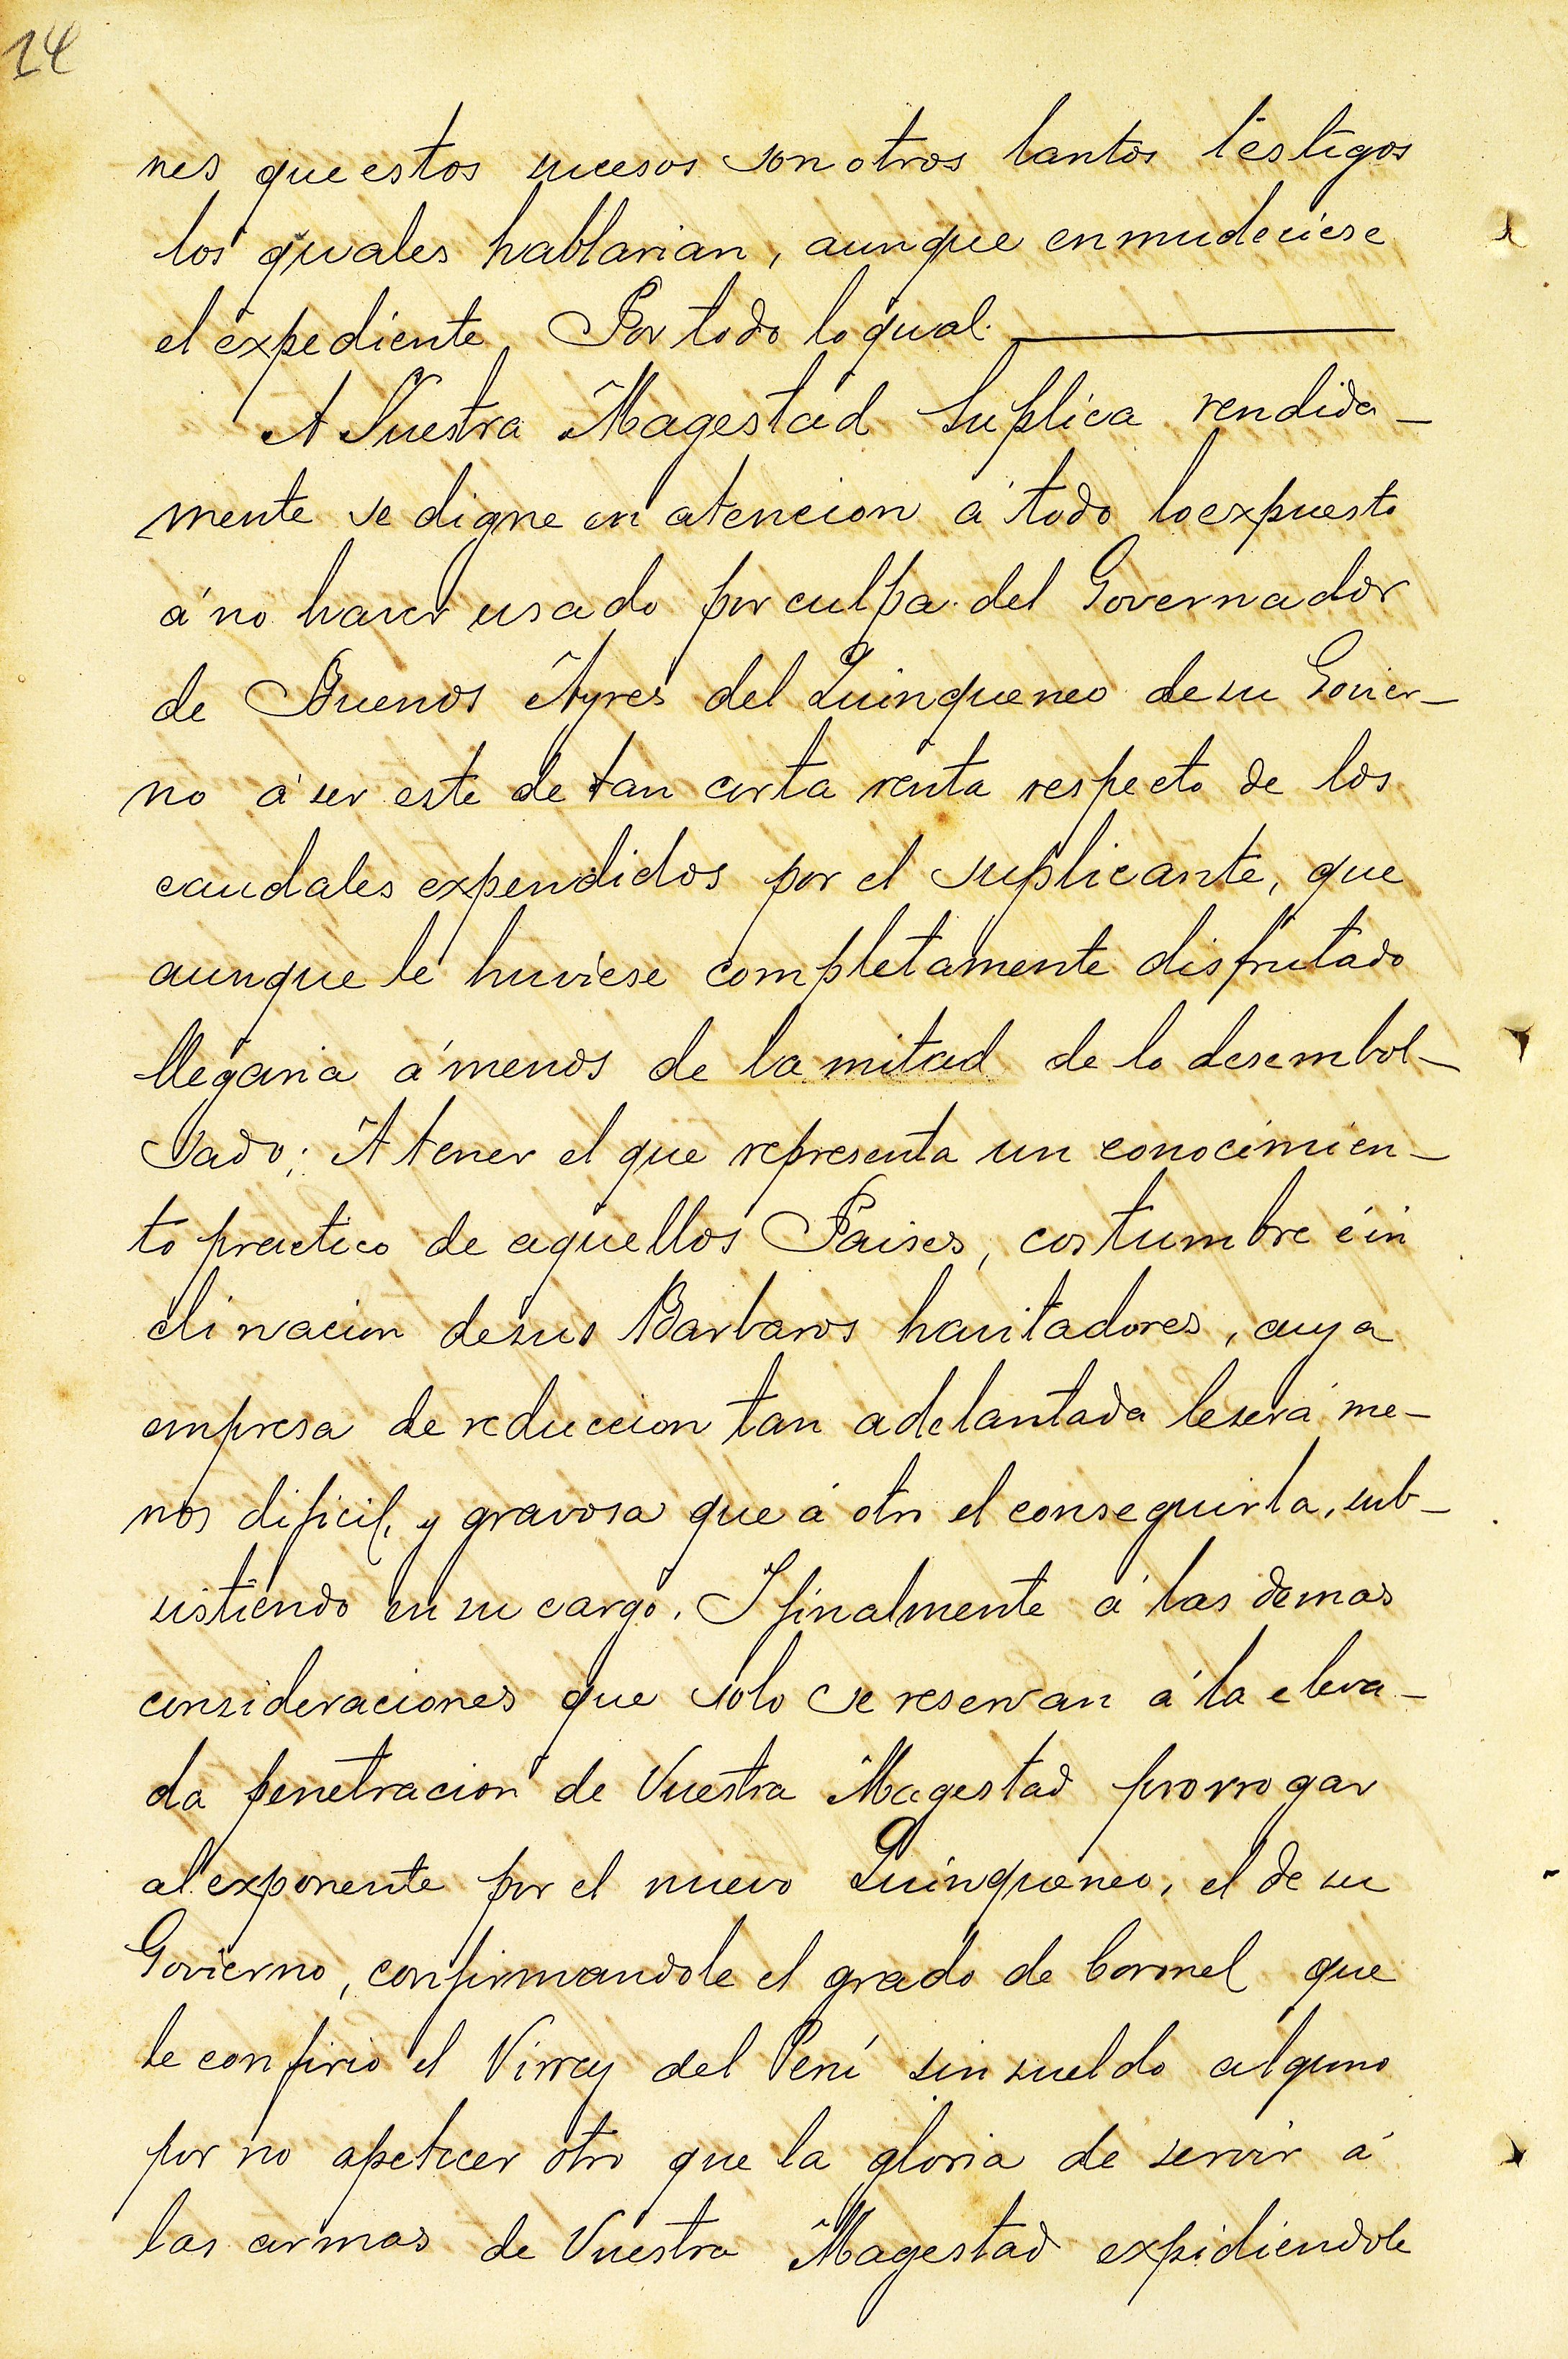 14
nes que estos sucesos son otros tantos testigos
los quales hablarian, aunque enmudeciese
el expediente. Por todo lo qual.
A Vuestra Magestad Suplica rendida-
mente se digne en atencion á todo lo expuesto
á no haver usado por culpa del Governador
de Buenos Ayres del Quinqueneo de su Govier-
no á ser este de tan corta renta respecto de los
caudales expendidos por el suplicante, que
aunque le huviese completamente disfrutado
llegaria á menos de la mitad de lo desembol-
sado; A tener el que representa un conocimien-
to practico de aquellos Paises, costumbre é in
clinacion de sus Barbaros havitadores, cuya
empresa de reduccion tan adelantada le será me-
nos dificil, y gravosa que á otro el conseguirla, sub-
sistiendo en su cargo. I finalmente á las demas
consideraciones que solo se reservan á la eleva-
da penetracion de Vuestra Magestad prorrogar
al exponente por el nuevo Quinqueneo, el de su
Govierno, confirmandole el grado de Coronel que
le confirio el Virrey del Perú sin sueldo alguno
por no apetecer otro que la gloria de servir á
las armas de Vuestra Magestad expidiendole